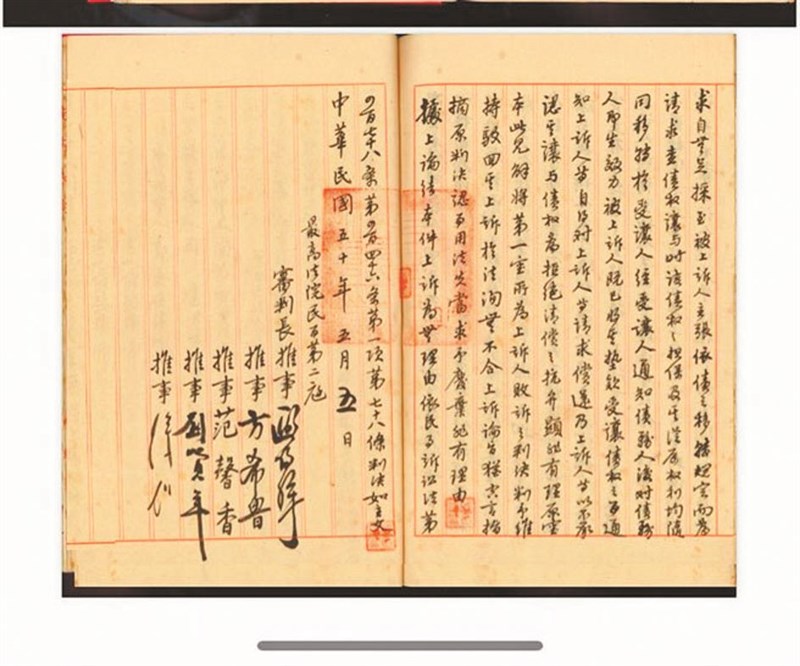 求自無足採至被上訴人主張依債之移轉規定而為
請求查債权讓与时該債权之担保及其從屬权利均隨
同移轉於受讓人經受讓人通知債務人後对債務
人即生效力被上訴人既已將其墊款受讓債权之事通
知上訴人等自得对上訴人等請求償還乃上訴人等以不承
認其讓与債权為拒絕清償之抗弁顯非有理原審
本此見解將第一審所為上訴人敗訴之判決判予維
持駁回其上訴於法洵無不合上訴論旨猶空言指
摘原判決認事用法失當求予廢棄非有理由
據上論結本件上訴為無理由依民事訴訟法第
四百七十八條第四百四十六條第一項第七十八條判決如主文
中華民國五十年五月五日
最高法院民事第二庭
審判長推事
推事方希魯
推事范馨香
推事
推事